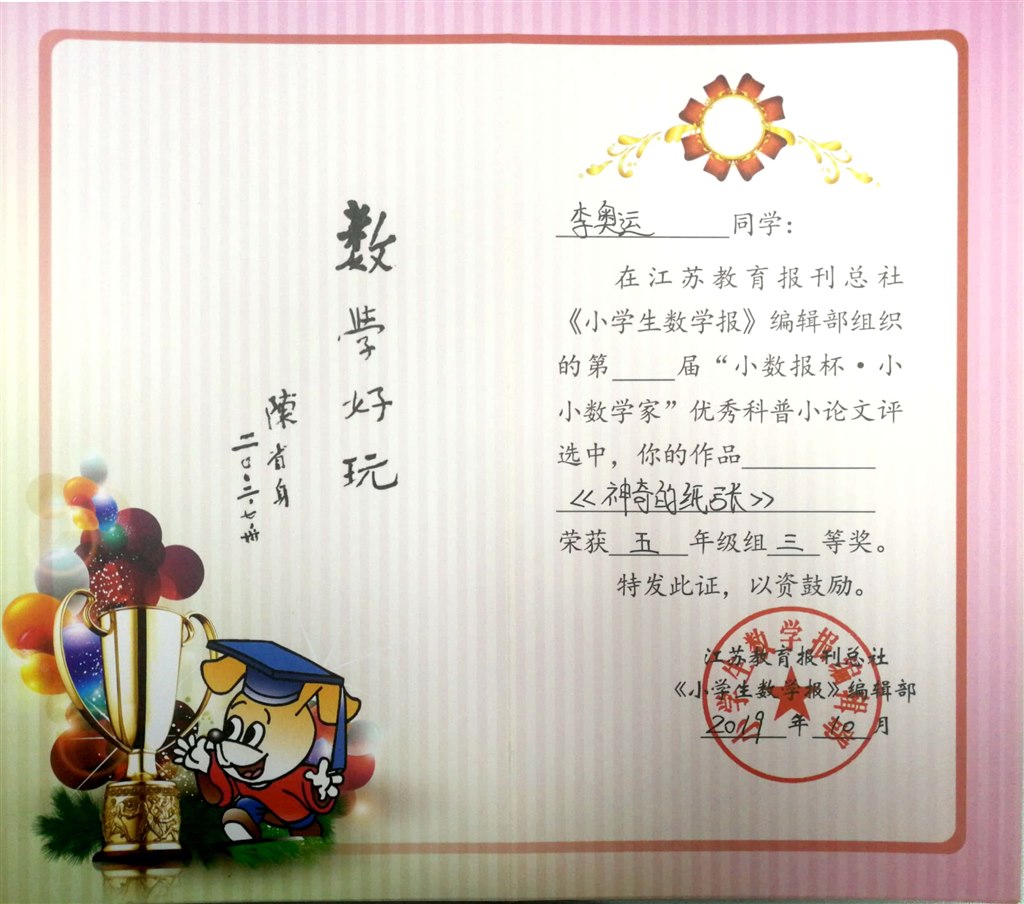 数学好玩
陳省身
二〇〇二.七.廿
李奥运 同学：
在江苏教育报刊总社
《小学生数学报》编辑部组织
的第____届“小数报杯·小
小数学家”优秀科普小论文评
选中，你的作品
《神奇的纸张》
荣获 五 年级组 三 等奖。
特发此证，以资鼓励。
江苏教育报刊总社
《小学生数学报》编辑部
2019 年 10 月
小学生数学报编辑部